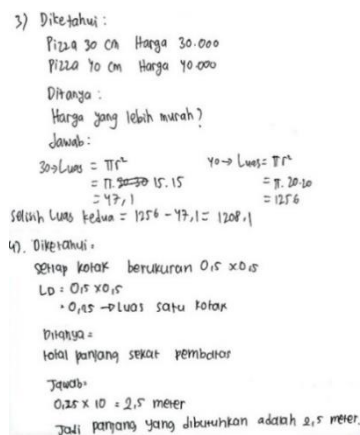 3) Diketahui :
Pizza 30 cm Harga 30.000
Pizza 40 cm Harga 40.000
Ditanya :
Harga yang lebih murah?
Jawab :
30→Luas = πr² 40→ Luas = πr²
= π. 20 30 15. 15 = π. 20.20
= 47,1 = 1256
Selisih Luas kedua = 1256 - 47,1 = 1208,1
4). Diketahui =
Setiap kotak berukuran 0,5 x 0,5
LD = 0,5 x 0,5
= 0,25 → Luas satu kotak
Ditanya =
total panjang sekat pembatas
Jawab =
0,25 x 10 = 2,5 meter
Jadi panjang yang dibutuhkan adalah 2,5 meter.